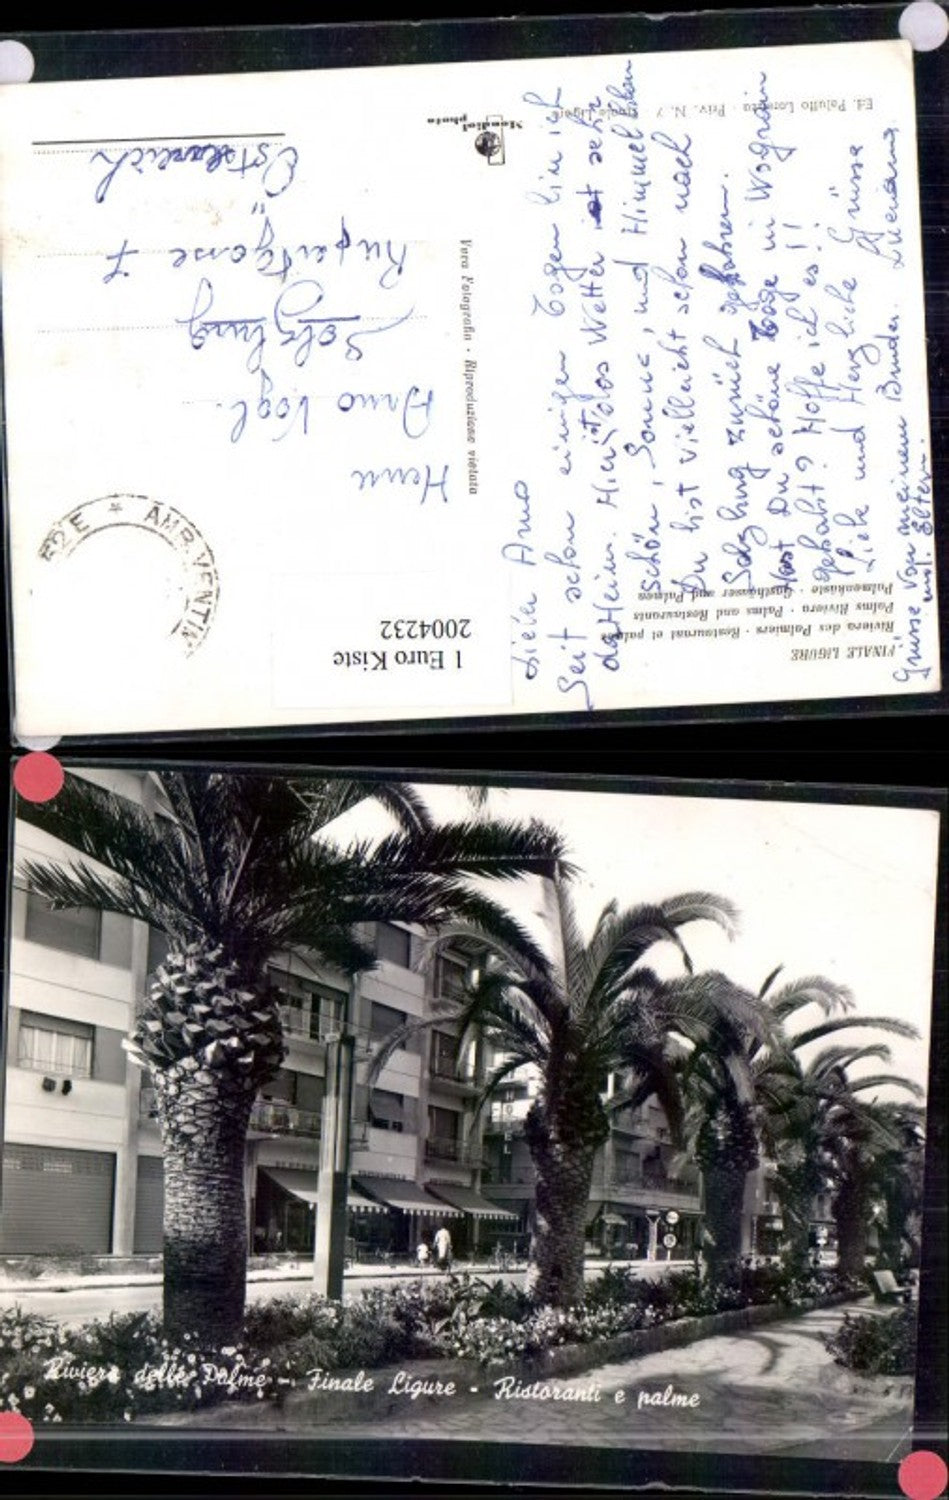 FINALE LIGURE
Riviera des Palmiers - Restaurant et palmes
Palms Riviera - Palms and Restaurants
Palmenküste - Gasthäuser und Palmen
1 Euro Kiste
2004232
AMB. VENTIM
Vera Fotografia - Riproduzione vietata
Mondial photo
Ed. Palutto Lorenza - Priv. N. 7 - Finale Ligure
Herrn
Arno Vogl.
Salzburg
Rupertgasse 7
Österreich
Lieber Arno
Seit schon einigen Tagen bin ich
daHeim. Hier ist das Wetter ist sehr
schön, Sonne, und Himmel blau
Du bist vielleicht schon nach
Salzburg zurück gefahren.
Hast Du schöne Tage in Wagrain
gehabt? Hoffe ich es!!
Liebe und Herzliche Grüsse
Grüsse von meinem Bruder.
und Eltern.
Riviera delle Palme - Finale Ligure - Ristoranti e palme